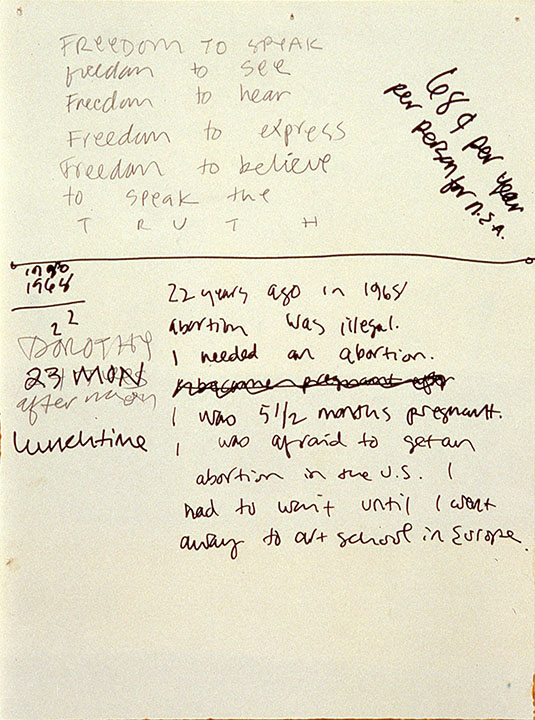 FREEDOM TO SPEAK
freedom to see
Freedom to hear
Freedom to express
Freedom to believe
to speak the
T R U T H
68¢ per year
per person for N.E.A.
1990
1968
22
DOROTHY
23 MON
afternoon
lunchtime
22 years ago in 1968
abortion was illegal.
I needed an abortion.
I became pregnant after
I was 5 1/2 months pregnant.
I was afraid to get an
abortion in the U.S. I
had to wait until I went
away to art school in Europe.